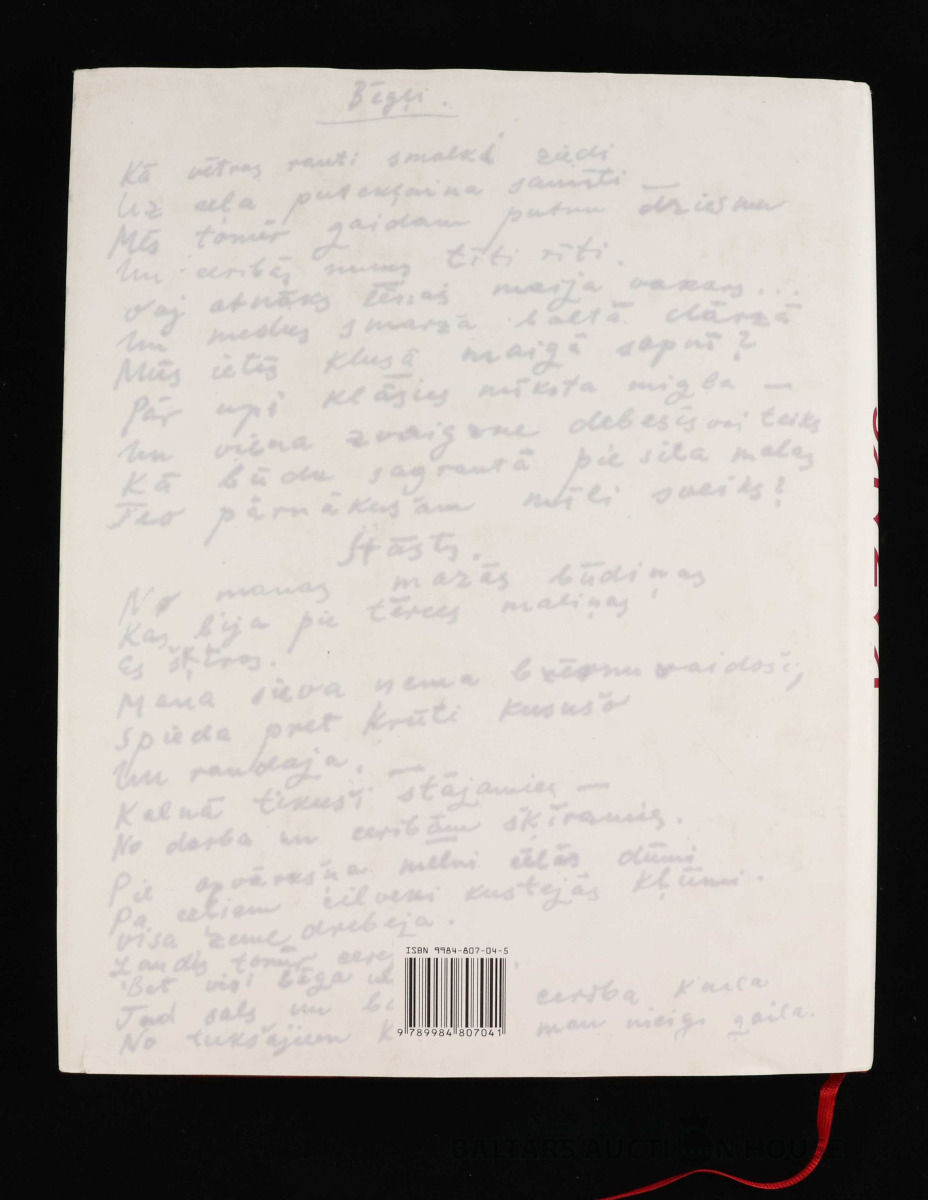 Bēgļi.
Kā vētras rauti smalkā ziedi
Uz ceļa putekļaina samīti
Mēs tomēr gaidam putnu dziesmu
Un cerībās mums tīti rīti.
Vaj atnāks tēssaj maija vakars...
Un medus smaržā baltā dārzā
Mūs ietīs klusā maigā sapnī?
Pār upi klāsies mīksta migla —
Un viena zvaigzne debesīs vai teiks
Kā būdu sagrautā pie sila malas
Tev pārnākušam mīli sveiks?
Stāsts.
No manas mazās būdiņas
Kas bija pie tērces maliņas
es šķīros.
Mana sieva ņema bērnu vaidošu,
Spieda pret krūti kususo
Un raudaja.
Kalnā tikuši stājamies —
No darba un cerībām šķīramies.
Pie apvāršņa melni cēlās dūmi
Pa ceļiem cilveki kustejās kļūmi.
visa zeme drebeja.
Laudis tomēr
Bet visi bēga
Tad sals un cerība kaila
No tukšājiem man nicīgi gaila.
ISBN 9984-807-04-5
9 789984 807041
BALTARS AUCTION HOUSE